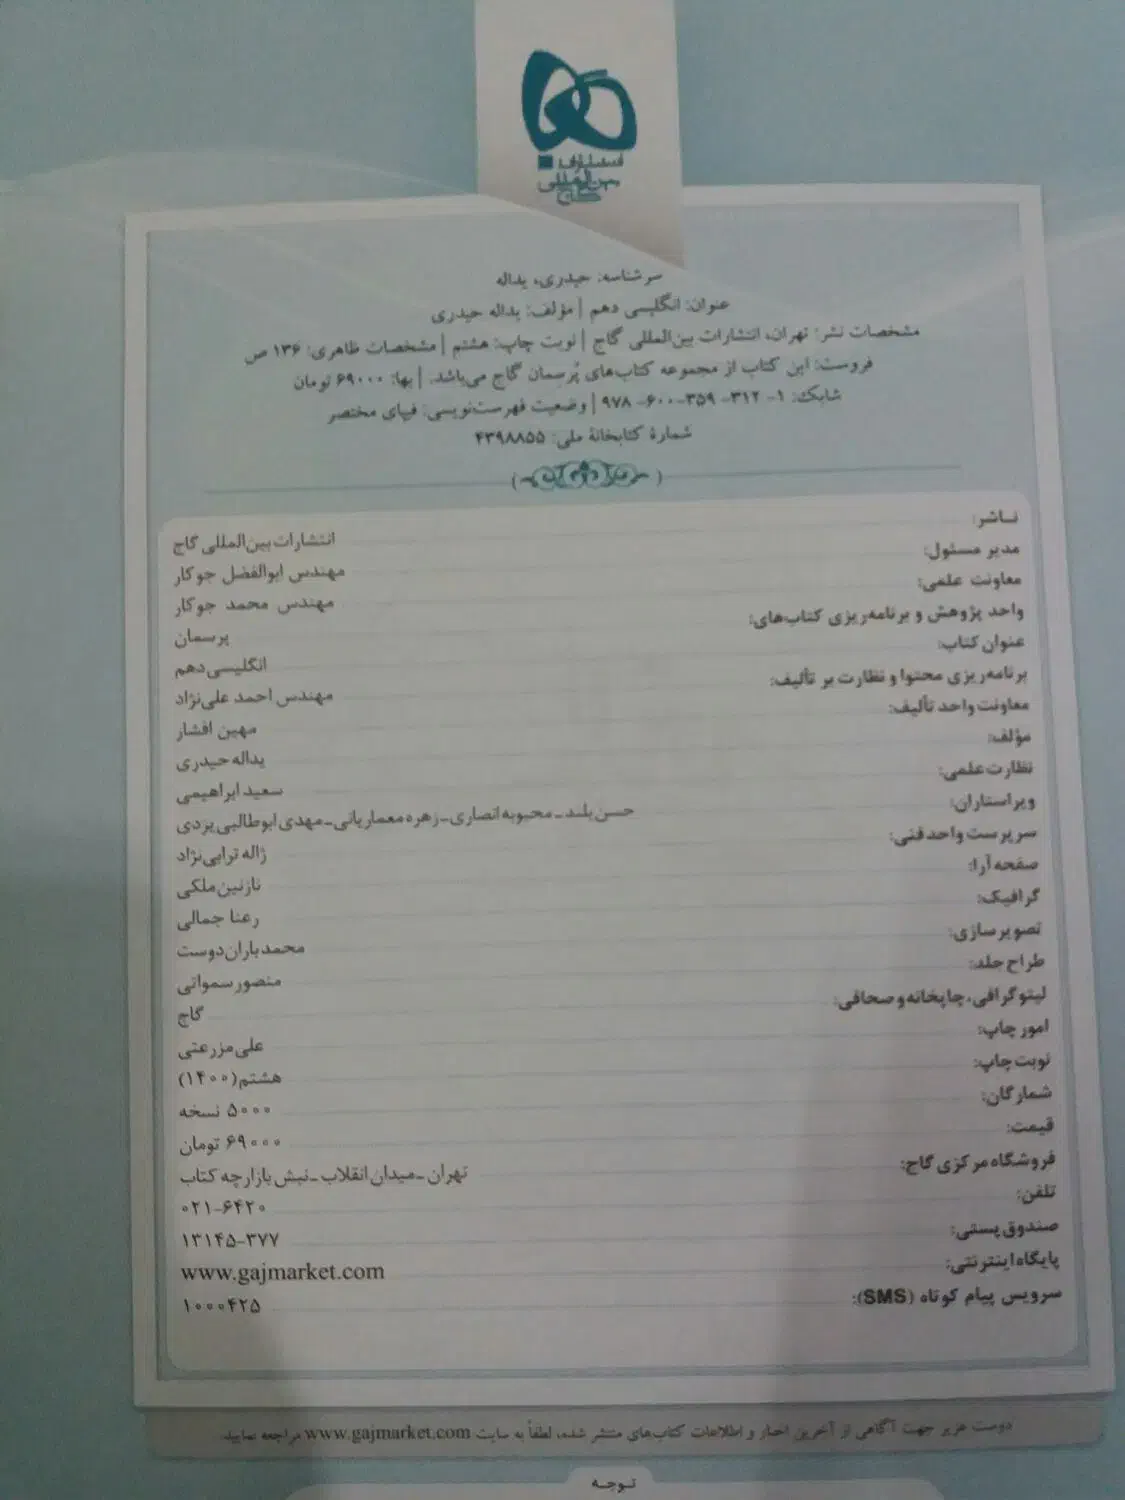 انتشارات
بین‌المللی
گاج
سرشناسه: حیدری، یداله
عنوان: انگلیسی دهم | مؤلف: یداله حیدری
مشخصات نشر: تهران، انتشارات بین‌المللی گاج | نوبت چاپ: هشتم | مشخصات ظاهری: ۱۳۶ ص
فروست: این کتاب از مجموعه کتاب‌های پُرسمان گاج می‌باشد. | بها: ۶۹۰۰۰ تومان
شابک: ۱- ۳۱۲- ۳۵۹-۶۰۰- ۹۷۸ | وضعیت فهرست‌نویسی: فیپای مختصر
شمارهٔ کتابخانهٔ ملی: ۴۳۹۸۸۵۵
ناشر: انتشارات بین‌المللی گاج
مدیر مسئول: مهندس ابوالفضل جوکار
معاونت علمی: مهندس محمد جوکار
واحد پژوهش و برنامه‌ریزی کتاب‌های: پرسمان
عنوان کتاب: انگلیسی دهم
برنامه‌ریزی محتوا و نظارت بر تألیف: مهندس احمد علی‌نژاد
معاونت واحد تألیف: مهین افشار
مؤلف: یداله حیدری
نظارت علمی: سعید ابراهیمی
ویراستاران: حسن بلند ـ محبوبه انصاری ـ زهره معماریانی ـ مهدی ابوطالبی یزدی
سرپرست واحد فنی: ژاله ترابی‌نژاد
صفحه‌آرا: نازنین ملکی
گرافیک: رعنا جمالی
تصویرسازی: محمد باران‌دوست
طراح جلد: منصور سمواتی
لیتوگرافی، چاپخانه و صحافی: گاج
امور چاپ: علی مزرعتی
نوبت چاپ: هشتم (۱۴۰۰)
شمارگان: ۵۰۰۰ نسخه
قیمت: ۶۹۰۰۰ تومان
فروشگاه مرکزی گاج: تهران ـ میدان انقلاب ـ نبش بازارچه کتاب
تلفن: ۰۲۱-۶۴۲۰
صندوق پستی: ۱۳۱۴۵-۳۷۷
پایگاه اینترنتی: www.gajmarket.com
سرویس پیام کوتاه (SMS): ۱۰۰۰۴۲۵
دوست عزیز جهت آگاهی از آخرین اخبار و اطلاعات کتاب‌های منتشر شده، لطفاً به سایت www.gajmarket.com مراجعه نمایید.
توجه